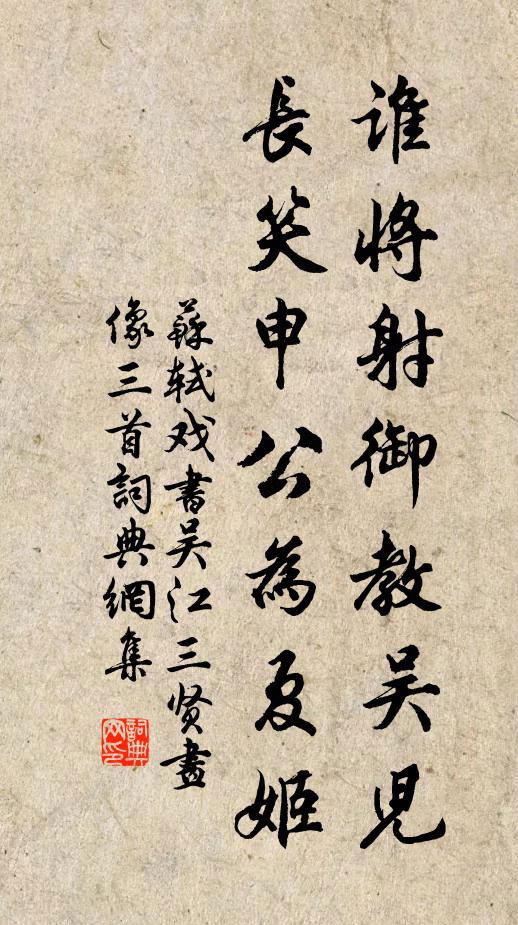 誰將射御教吳兒
長笑申公為夏姬
蘇軾戏書吴江三贤畫
像三首詞典網集
詞典網印